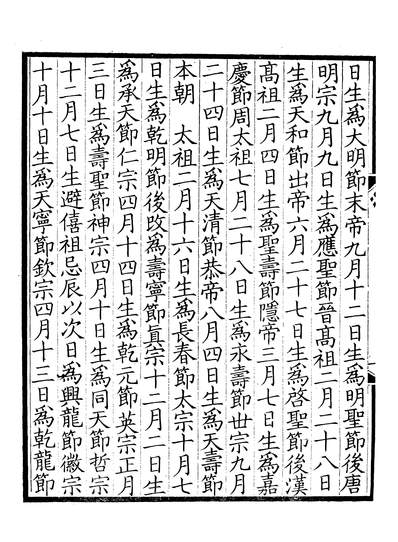 日生爲大明節末帝九月十二日生爲明聖節後唐
明宗九月九日生爲應聖節晉髙祖二月二十八日
生爲天和節出帝六月二十七日生爲啓聖節後漢
髙祖二月四日生爲聖壽節隱帝三月七日生爲嘉
慶節周太祖七月二十八日生爲永壽節世宗九月
二十四日生爲天清節恭帝八月四日生爲天壽節
本朝　太祖二月十六日生爲長春節太宗十月七
日生爲乾明節後改爲壽寧節眞宗十二月二日生
爲承天節仁宗四月十四日生爲乾元節英宗正月
三日生爲壽聖節神宗四月十日生爲同天節哲宗
十二月七日生避僖祖忌辰以次日爲興龍節徽宗
十月十日生爲天寧節欽宗四月十三日爲乾龍節